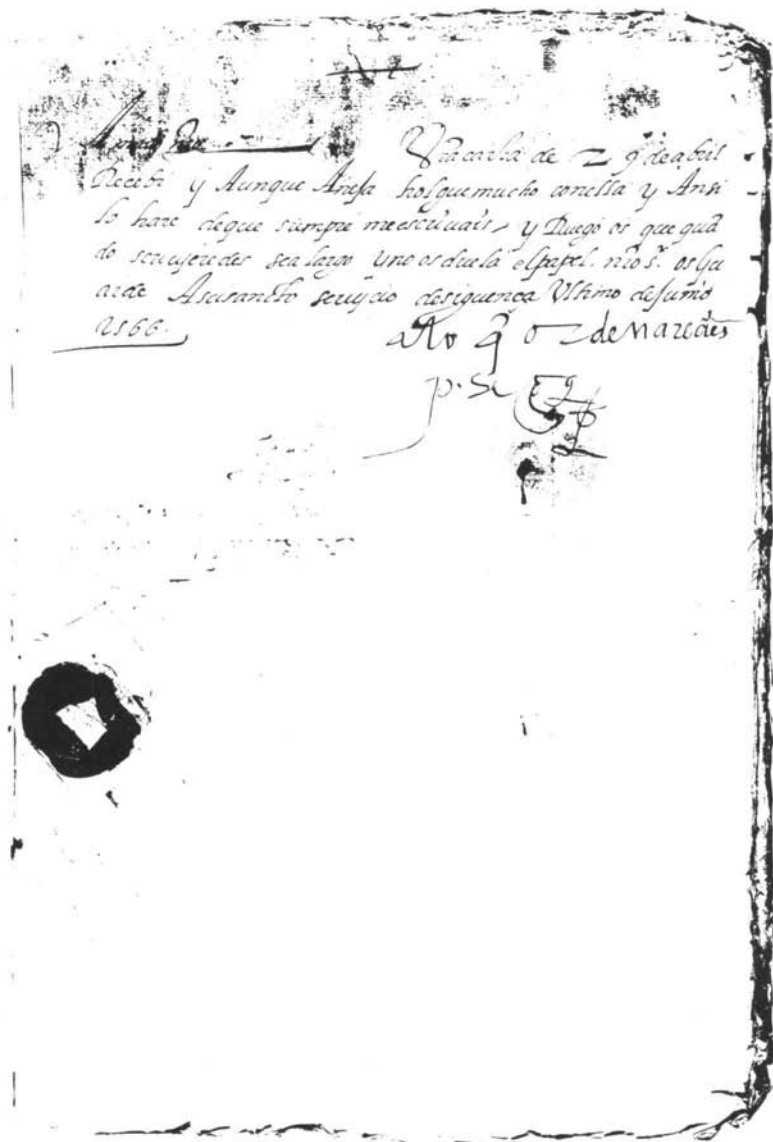 Vra carta de 29 de abril
Recebi y Aunque Añeja holgue mucho con ella y Ansi
lo hare de que siempre me escriuais y Ruego os que quã
do scriuieredes sea largo y no os duela el papel. nro s.ʳ os Gu
arde A su sancto seruycio de siguença Ultimo de Junio
1566.
p. Sẽ